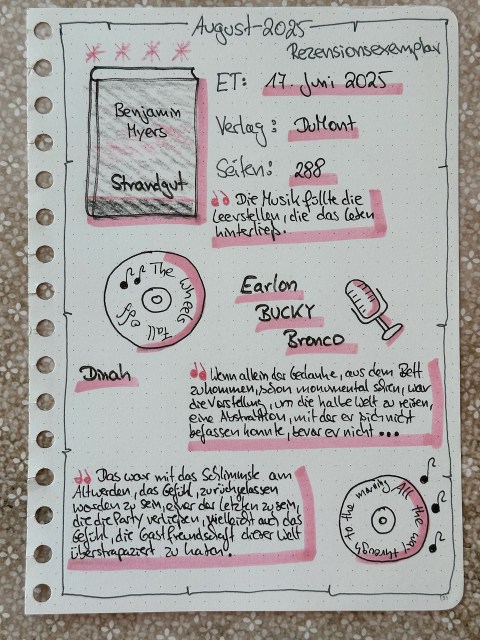 August-2025
Rezensionsexemplar
Benjamin
Myers
Strandgut
ET: 17. Juni 2025
Verlag: DuMont
Seiten: 288
"Die Musik füllte die
Leerstellen, die das Leben
hinterließ.
The Wheels
Fall
off
Earlon
BUCKY
Bronco
Dinah
"Wenn allein der Gedanke, aus dem Bett
zu kommen, schon monumental schien, war
die Vorstellung, um die halbe Welt zu reisen,
eine Abstraktion, mit der er sich nicht
befassen konnte, bevor er nicht...
"Das war mit das Schlimmste am
Altwerden, das Gefühl, zurückgelassen
worden zu sein, einer der letzten zu sein,
die die Party verließen, vielleicht auch das
Gefühl, die Gastfreundschaft dieser Welt
überstrapaziert zu haben.
All the way through
to the morning